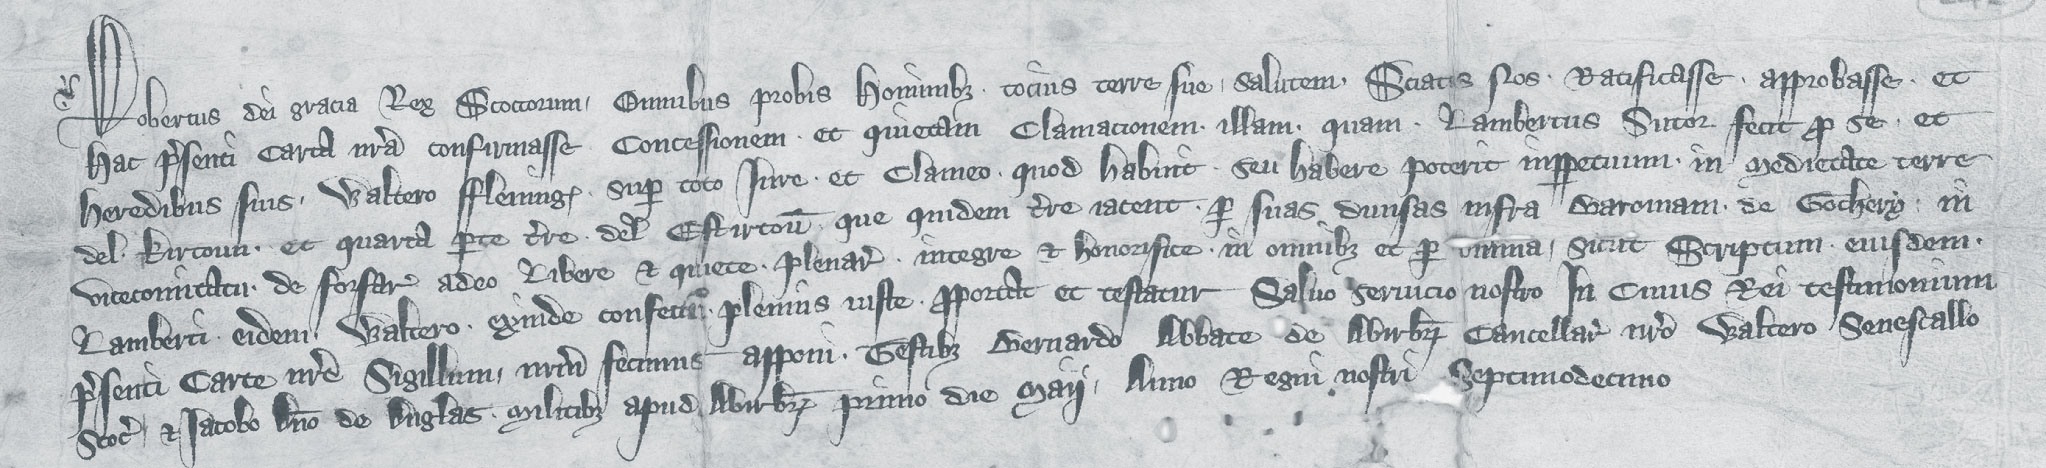 Robertus dei gracia Rex Scottorum, Omnibus probis hominibꝫ. tocius terre sue, salutem. Sciatis Nos. Ratificasse. approbasse. et
hac p̃senti Carta nr̃a confirmasse. Concessionem. et quietam Clamacionem. illam. quam. Lambertus Sutor fecit ꝓ se. et
heredibus suis, Waltero fflemingꝭ. suꝑ toto Jure. et Clameo. quod habuit. seu habere poterit in medietate terre
del. Kirtoun. et quarta ꝑte t̃re. del. Estirtoũ. que quidem t̃re iacent. ꝑ suas diuisas infra Baroniam. de Gochery. in
vicecomitatu. de forfar̃ adeo Libere ⁊ quiete. plenar̃. integre ⁊ honorifice. in omnibꝫ et ꝑ omnia, sicut Scriptum. eiusdem.
Lamberti. eidem. Waltero. exinde confectũ. plenius iuste. ꝓportat et testatur Saluo seruicio nostro In Cuius Rei testimonium
p̃senti Carte nr̃e Sigillum, nr̃m fecimus apponi. Testibꝫ Bernardo Abbate de Abirbr̃ Cancellar̃ nr̃o Waltero Senescallo
Scoc̃, ⁊ Jacobo dño de duglas. militibꝫ apud Abirbr̃ primo die Maij, Anno Regni nostri Septimodecimo